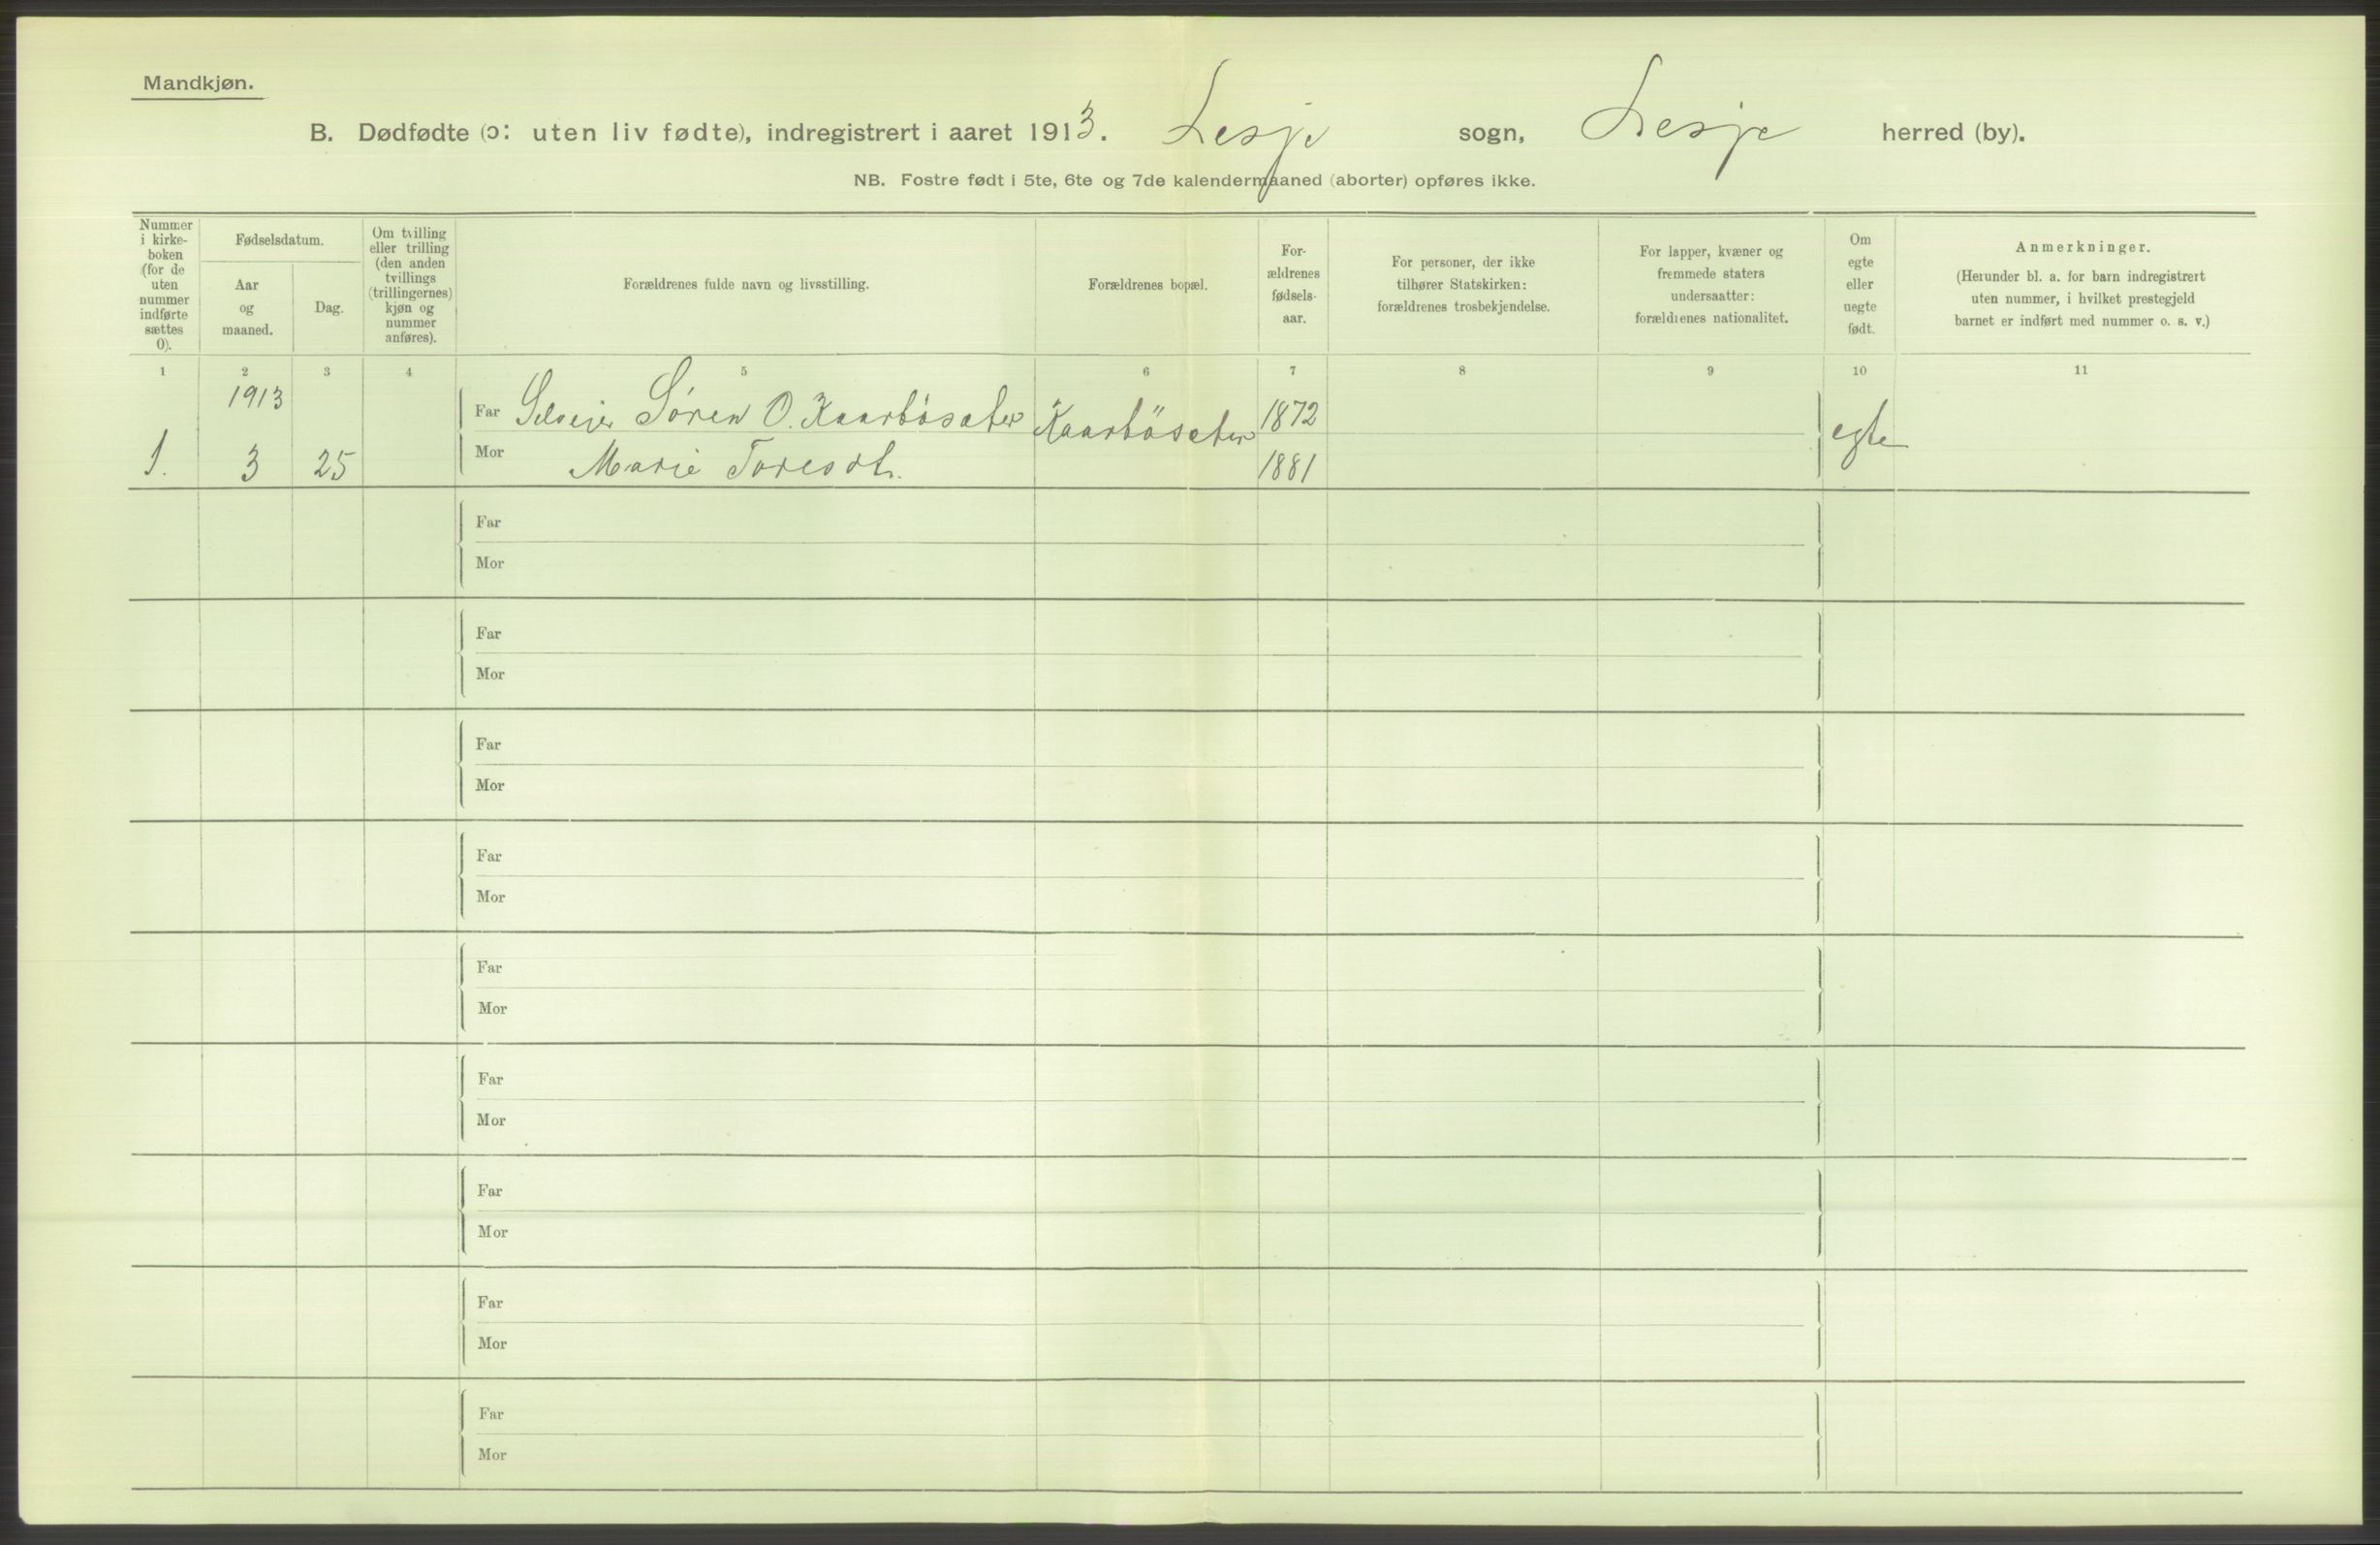 Mandkjøn.
B. Dødfødte (ɔ: uten liv fødte), indregistrert i aaret 1913. Lesje sogn, Lesje herred (by).
NB. Fostre født i 5te, 6te og 7de kalendermaaned (aborter) opføres ikke.
Nummer i kirke-boken (for de uten nummer indførte sættes 0).
Fødselsdatum.
Aar og maaned.
Dag.
Om tvilling eller trilling (den anden tvillings (trillingernes) kjøn og nummer anføres).
Forældrenes fulde navn og livsstilling.
Forældrenes bopæl.
For-ældrenes fødsels-aar.
For personer, der ikke tilhører Statskirken: forældrenes trosbekjendelse.
For lapper, kvæner og fremmede staters undersaatter: forældrenes nationalitet.
Om egte eller uegte født.
Anmerkninger.
(Herunder bl. a. for barn indregistrert uten nummer, i hvilket prestegjeld barnet er indført med nummer o. s. v.)
1 2 3 4 5 6 7 8 9 10 11
1913
Far Selveier Søren O. Kaarbøsæter Kaarbøsæter 1872 egte
1. 3 25 Mor Marie Toresdt. 1881
Far
Mor
Far
Mor
Far
Mor
Far
Mor
Far
Mor
Far
Mor
Far
Mor
Far
Mor
Far
Mor